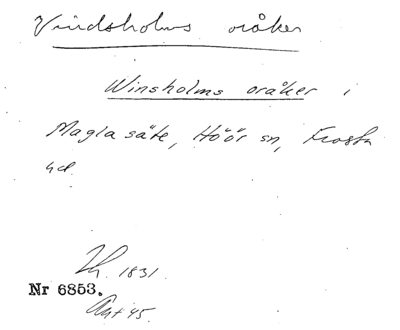 Vindsholms oråker
Winsholms oråker i
Magla säte, Höör sn, Frosta
hd.
1831.
Nr 6853.